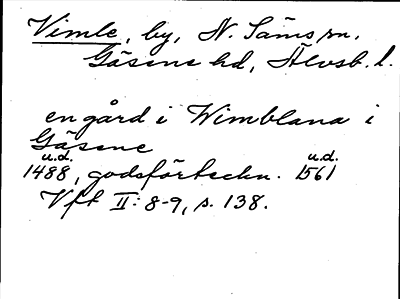 Vimle, by, N. Säms sn.
Gäsene hd, Älvsb. l.
en gård i Wimblana i
Gäsene
u.d. u.d.
1488, godsförteckn. 1561
Vft II: 8-9, s. 138.